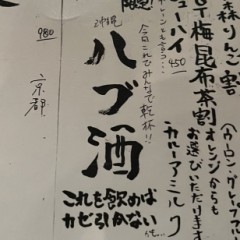 森りんご割
梅昆布茶割
ューハイ
450
(カウロン・グレープフル
オレンジからも
お選びいただけます
カルーアミルク
限定!
沖縄
ハブ酒
今日これでみんなで乾杯!!
これを飲めば
カゼ引かない
980
京都